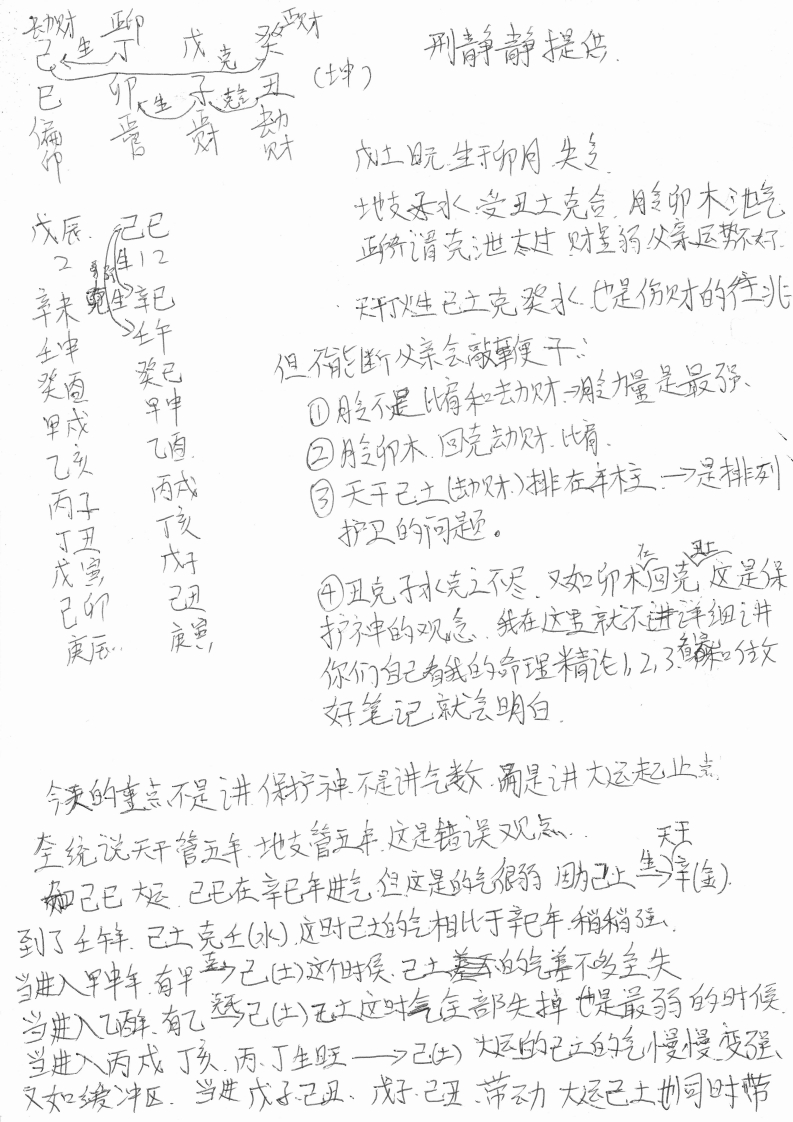 劫财 正印 正财
己 生 丁 戊 克 癸
巳 卯 生 子 克合 丑 (土申)
偏印 正官 正财 劫财
刑静静提供.
戊土日元.生于卯月.失令
地支子水.受丑土克合.月令卯木泄气
正所谓克泄太过 财星弱父亲运势不好.
天干丁火生己土克癸水.也是伤财的征兆
但不能断父亲会敲鞭干:
①月令不是比肩和劫财→月令力量是最强、
②月令卯木.回克劫财.比肩.
③天干己土(劫财)排在年柱.→是排列
护卫的问题。
④丑克子水克之不尽.又如卯木在回克丑土这是保
护神的观念.我在这里就不进详细讲
你们自己看我的命理精论1,2,3.和位文
好笔记.就会明白.
戊辰. 己巳
2 生12
辛未 克生辛巳
壬申 壬午
癸酉 癸巳
甲戌 甲申
乙亥 乙酉
丙子 丙戌
丁丑 丁亥
戊寅 戊子
己卯 己丑
庚辰. 庚寅
今天的重点不是讲.保护神.不是讲气数.而是讲大运起止点
全统说天干管五年.地支管五年.这是错误观点..
如己巳大运.己巳在辛巳年进气.但这是的气很弱 因为己土生→天干辛(金).
到了壬午年.己土克壬(水).这时己土的气相比于辛巳年.稍稍强.
当进入甲申年.有甲→己(土)这个时侯.己土的气差不多全失
当进入乙酉年.有乙克→己(土)己土这时气全部失掉 也是最弱的时候.
当进入丙戌 丁亥.丙.丁生旺→己(土) 大运的己土的气慢慢变强、
又如缓冲区.当进戊子.己丑.戊子.己丑.带动 大运己土也同时带